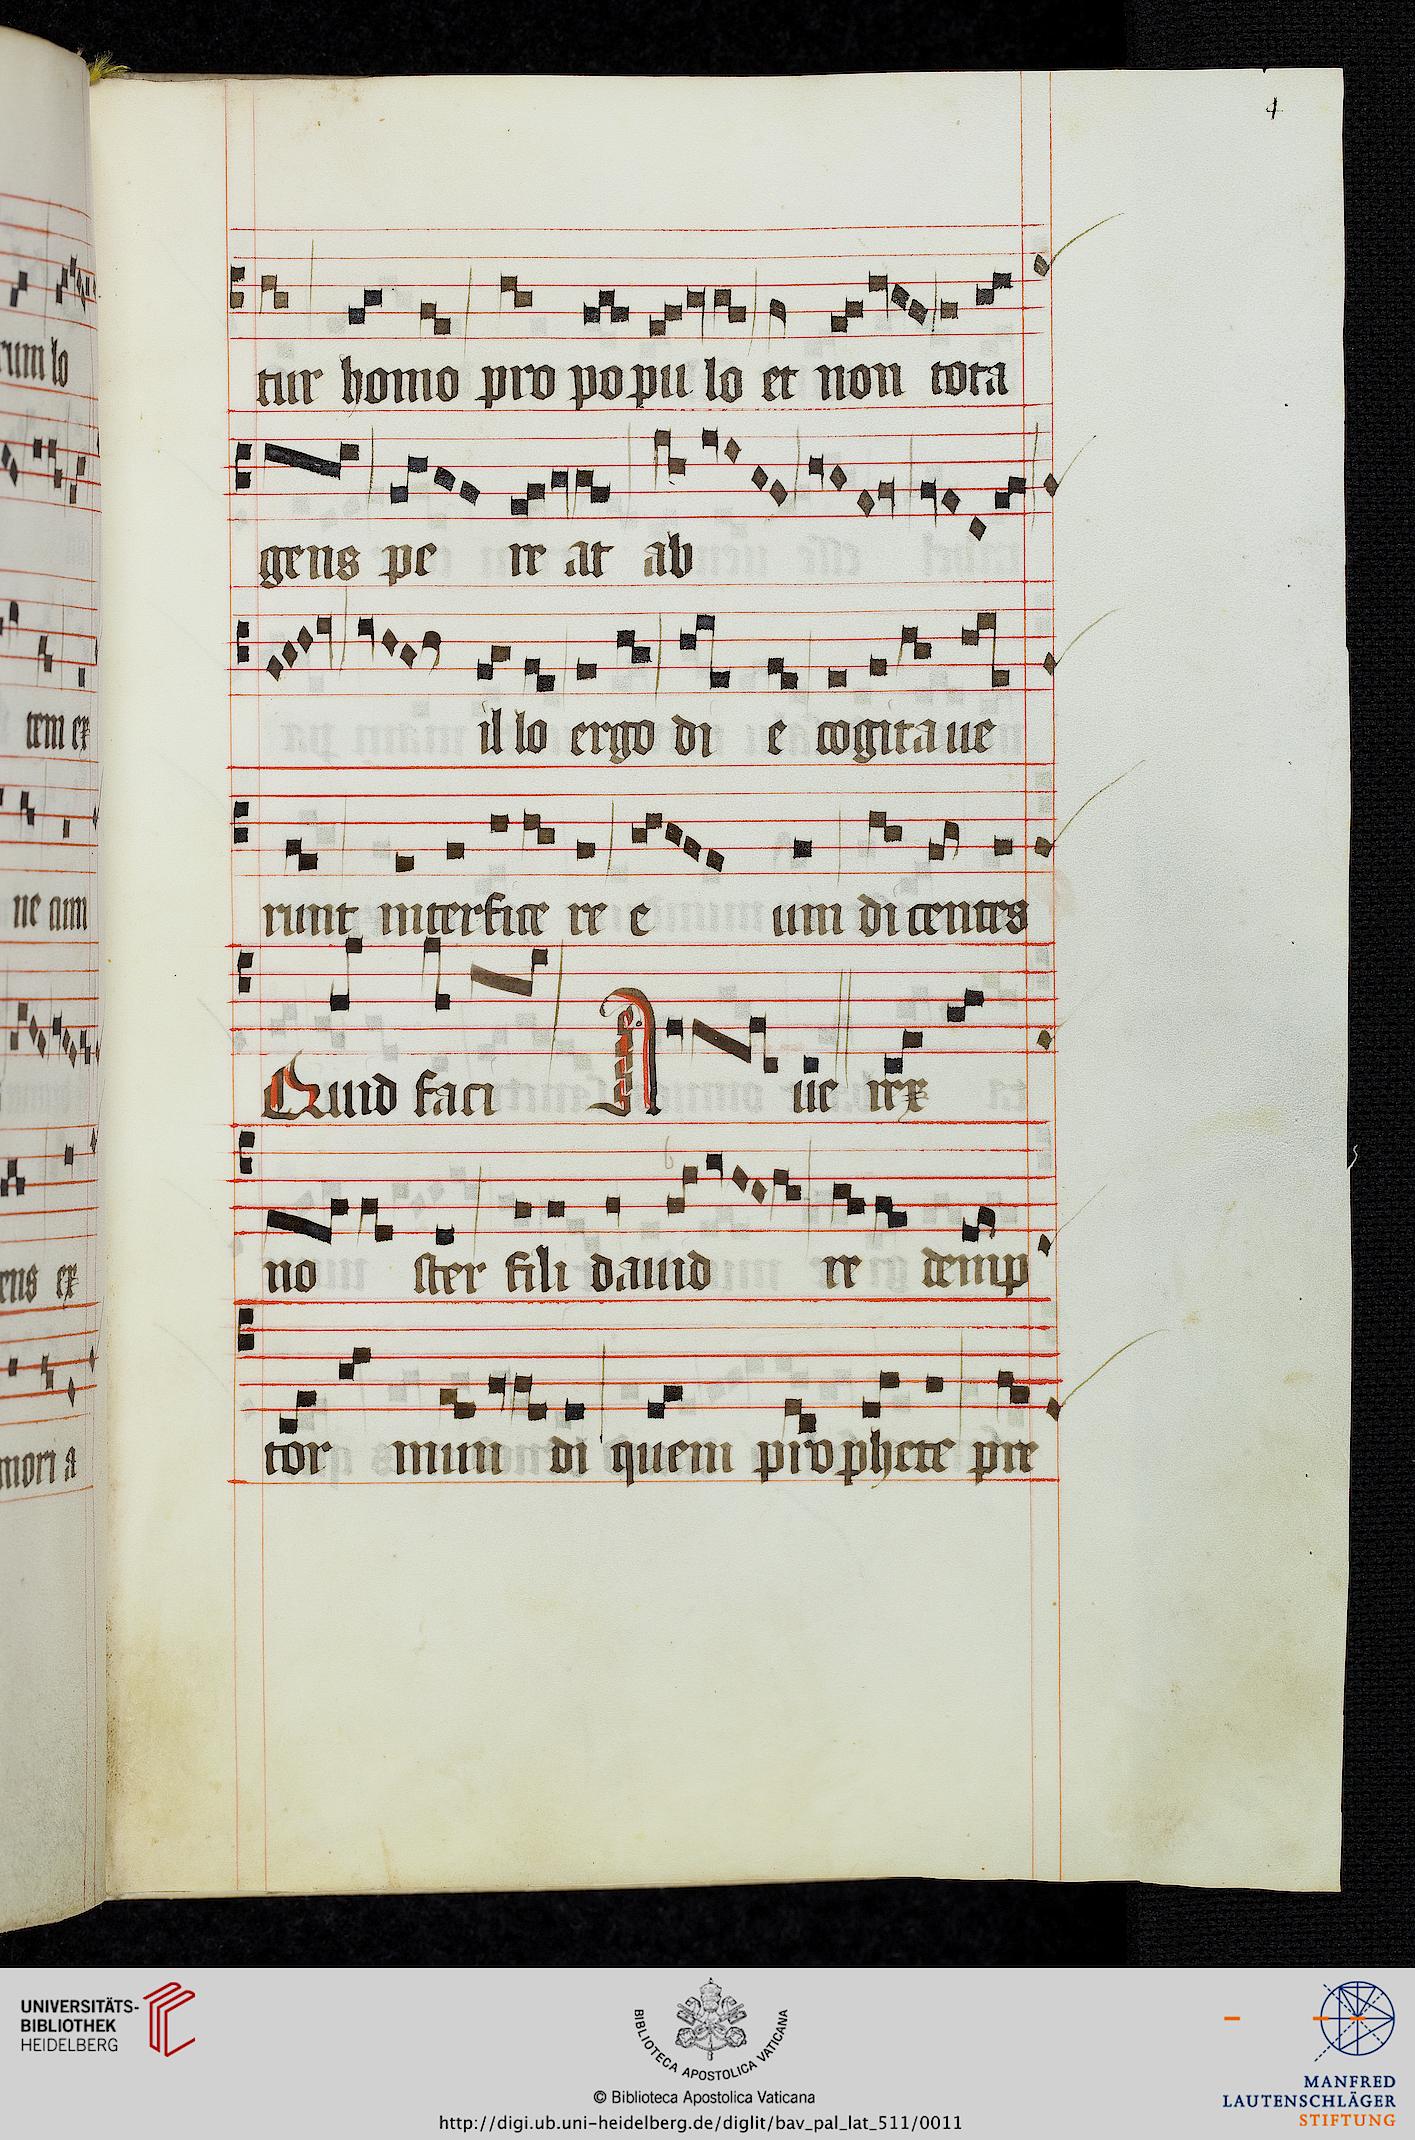 4
rum lo
tur homo pro po pu lo et non tota
gens pe re at ab
tem ex
il lo ergo di e cogita ue
ne cum
runt interfice re e um di centes
Quid faci A ue rex
no ster fili dauid re demp
ens ex
tor mun di quem pro phete pre
mori a
UNIVERSITÄTS-
BIBLIOTHEK
HEIDELBERG
BIBLIOTECA APOSTOLICA VATICANA
© Biblioteca Apostolica Vaticana
http://digi.ub.uni-heidelberg.de/diglit/bav_pal_lat_511/0011
MANFRED
LAUTENSCHLÄGER
STIFTUNG